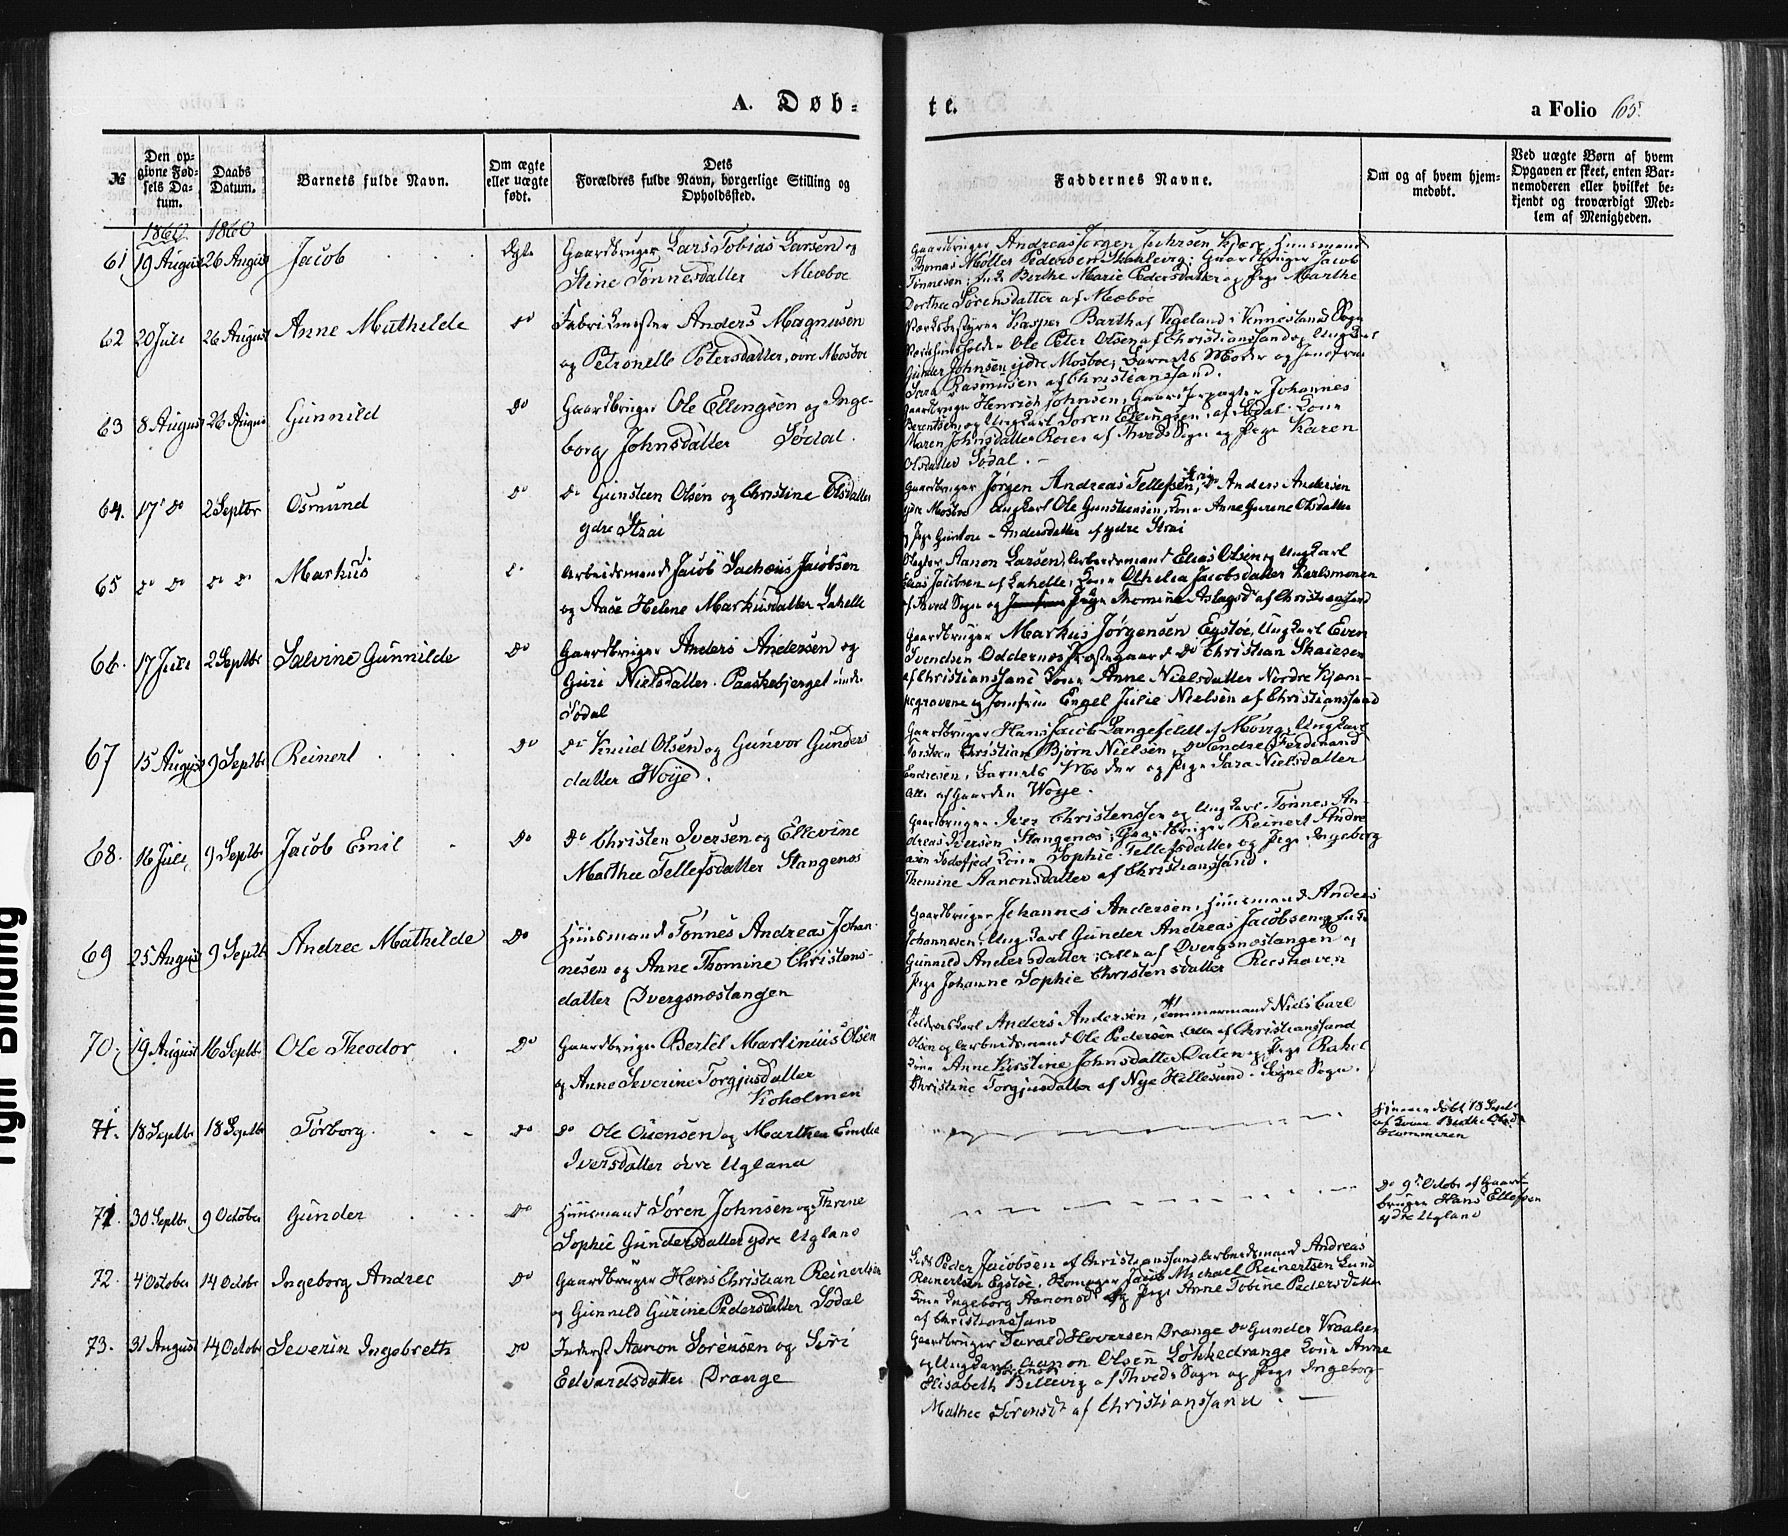 A. Døb-
te.
a Folio 65.
№
Den op-
givne Fød-
sels Da-
tum.
Daabs
Datum.
Barnets fulde Navn.
Om ægte
eller uægte
født.
Dets
Forældres fulde Navn, borgerlige Stilling og
Opholdssted.
Faddernes Navne.
Om og af hvem hjem-
medøbt.
Ved uægte Børn af hvem
Opgaven er skeet, enten Bar-
nemoderen eller hvilket be-
kjendt og troværdigt Med-
lem af Menigheden.
1860 1860
61 19 August 26 August Jacob Ægte
Gaardbruger Lars Tobias Larsen og
Stine Tønnesdatter Mæboe
Gaardbruger Andreas Jørgen Johnsen Kjære, Huusmand
Thomas Møller Pedersen; Gaardbruger Jacob
Tønnesen; Birthe Marie Pedersdatter og Pige Marthe
Dorthea Sørensdatter af Mæboe
62 20 Juli 26 August Anne Mathilde Do
Fabrikmester Anders Magnusen
og Petronelle Petersdatter, øvre Mosboe
Kasper Barth af Vegeland i Vennesland Sogn
Ole Peter Olsen af Christianssand og Ungkarl
Gunder Johnsen ydre Mosboe; Barnets Moder og Jomfrue
Sara Rasmusen af Christianssand.
63 8 August 26 August Gunnild Do
Gaardbruger Ole Ellingsen og Inge-
borg Johnsdatter Sødal.
Gaardbruger Henrich Johnsen, Gaardforpagter Johannes
Berentsen og Ungkarl Søren Ellingsen, af Sødal. Kone
Maren Johnsdatter Roser af Thveds Sogn og Pige Karen
Olsdatter Sødal.
64. 17 Do 2 Septbr Osmund Do
Do Gunsteen Olsen og Christine Olsdatter
ydre Strai
Gaardbruger Jørgen Andreas Tellefsen, Do Anders Andersen
ydre Mosboe Ungkarl Ole Gunsteensen, Kone Anne Gurene Olsdatter
og Pige Andersdatter af ydre Strai
65 Do Do Do Do Markus Do
Arbeidsmand Jacob Sachæus Jacobsen
og Aase Helene Markusdatter Lahelle
Aanon Larsen, Arbeidsmand Elias Olsen og Ungkarl
Elias Jacobsen af Lahelle; Kone Othelia Jacobsdatter Karlsmonen
af Thved Sogn og Pige Thomine Aslagsd. af Christianssand
66. 17 Juli 2 Septbr Salvine Gunnilde Do
Gaardbruger Anders Andersen og
Guri Nielsdatter. Paaskebjerget under
Sødal
Gaardbruger Markus Jørgensen Egstøe, Ungkarl Even
Svendsen Oddernes Præstegaard Do Christian
af Christianssand Kone Anne Nielsdatter Nordre Kjøm-
pegravene og Jomfrue Engel Julie Nielsen af Christianssand
67 15 August 9 Septbr Reinert Do
Do Knud Olsen og Gunvor Gunders
datter Woje.
Gaardbruger Hans Jacob Langefeldt af Ungkarl
Christian Bjørn Nielsen, Do Endre Ferdinand
Endresen, Barnets Moder og Pige Sara Nielsdatter
Alle af Gaarden Woje.
68. 16 Juli 9 Septbr Jacob Emil Do
Do Christen Iversen og Ellevine
Marthea Tellefsdatter Stangenes
Gaardbruger Iver Christensen og Ungkarl Tønnes An-
dreas Iversen Stangenes; Gaardbruger Reinert Andre
asen Kone Sophie Tellefsdatter og Pige Ingeborg
Thomine Aanonsdatter af Christianssand.
69 25 August 9 Septbr Andrea Mathilde Do
Huusmand Tønnes Andreas Johan-
nesen og Anne Thomine Christens-
datter Dvergsnæstangen
Gaardbruger Johannes Andersen, Huusmand Anders
Johannesen, Ungkarl Gunder Andreas Jacobsen og
Gunnild Andersdatter; Alle af Dvergsnæstangen og
Pige Johanne Sophie Christensdatter
70. 19 August 16 Septbr Ole Theodor Do
Gaardbruger Bertel Martinius Olsen
og Anne Severine Torgjusdatter
Koholmen
Anders Andersen, Tømmermand Niels Carl
Olsen og Arbeidsmand Ole Pedersen, Alle af Christianssand
Kone Anne Kirstine Johnsdatter Dalen og Pige Rakel
Christine Torgjusdatter af Nye Hellesund. Søgne Sogn.
71. 18 Septbr 18 Septbr Torborg Do
Do Ole Osensen og Marthea Emilie
Iversdatter øvre Ugland
Hjemmedøbt 18 Septb
af Kone Birthe
71. 30 Septbr 9 October Gunder Do
Huusmand Søren Johnsen og Thrine
Sophie Gundersdatter ydre Ugland
Do 9de Octobr af Gaard-
bruger Hans Ellefsen
ydre Ugland
72. 4 October 14 Octobr Ingeborg Andrea Do
Gaardbruger Hans Christian Reinertsen
og Gunnild Gurine Pedersdatter Sødal
Peder Jacobsen af Christianssand Arbeidsmand Andreas
Reinertsen Egstøe, Jacob Michael Reinertsen Lund
Kone Ingeborg Aanonsdr og Pige Anne Tobine Pedersdatter
af Christianssand
73. 31 August 14 Octobr Severin Ingebreth Do
Inderst Aanon Sørensen og Siri
Edvardsdatter Drange
Gaardbruger Tarald Hoversen Drange Do Gunder Vraalsen
og Ungkarl Aanon Olsen Løkkedrange Kone Anne
Elisabeth Sørensdr Bellevig af Thveds Sogn og Pige Ingeborg
Mathea Sørensdr af Christianssand.
Tight Binding